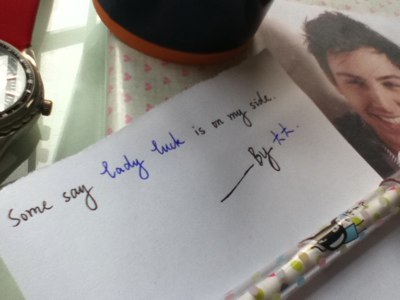 Some say lady luck is on my side.
By